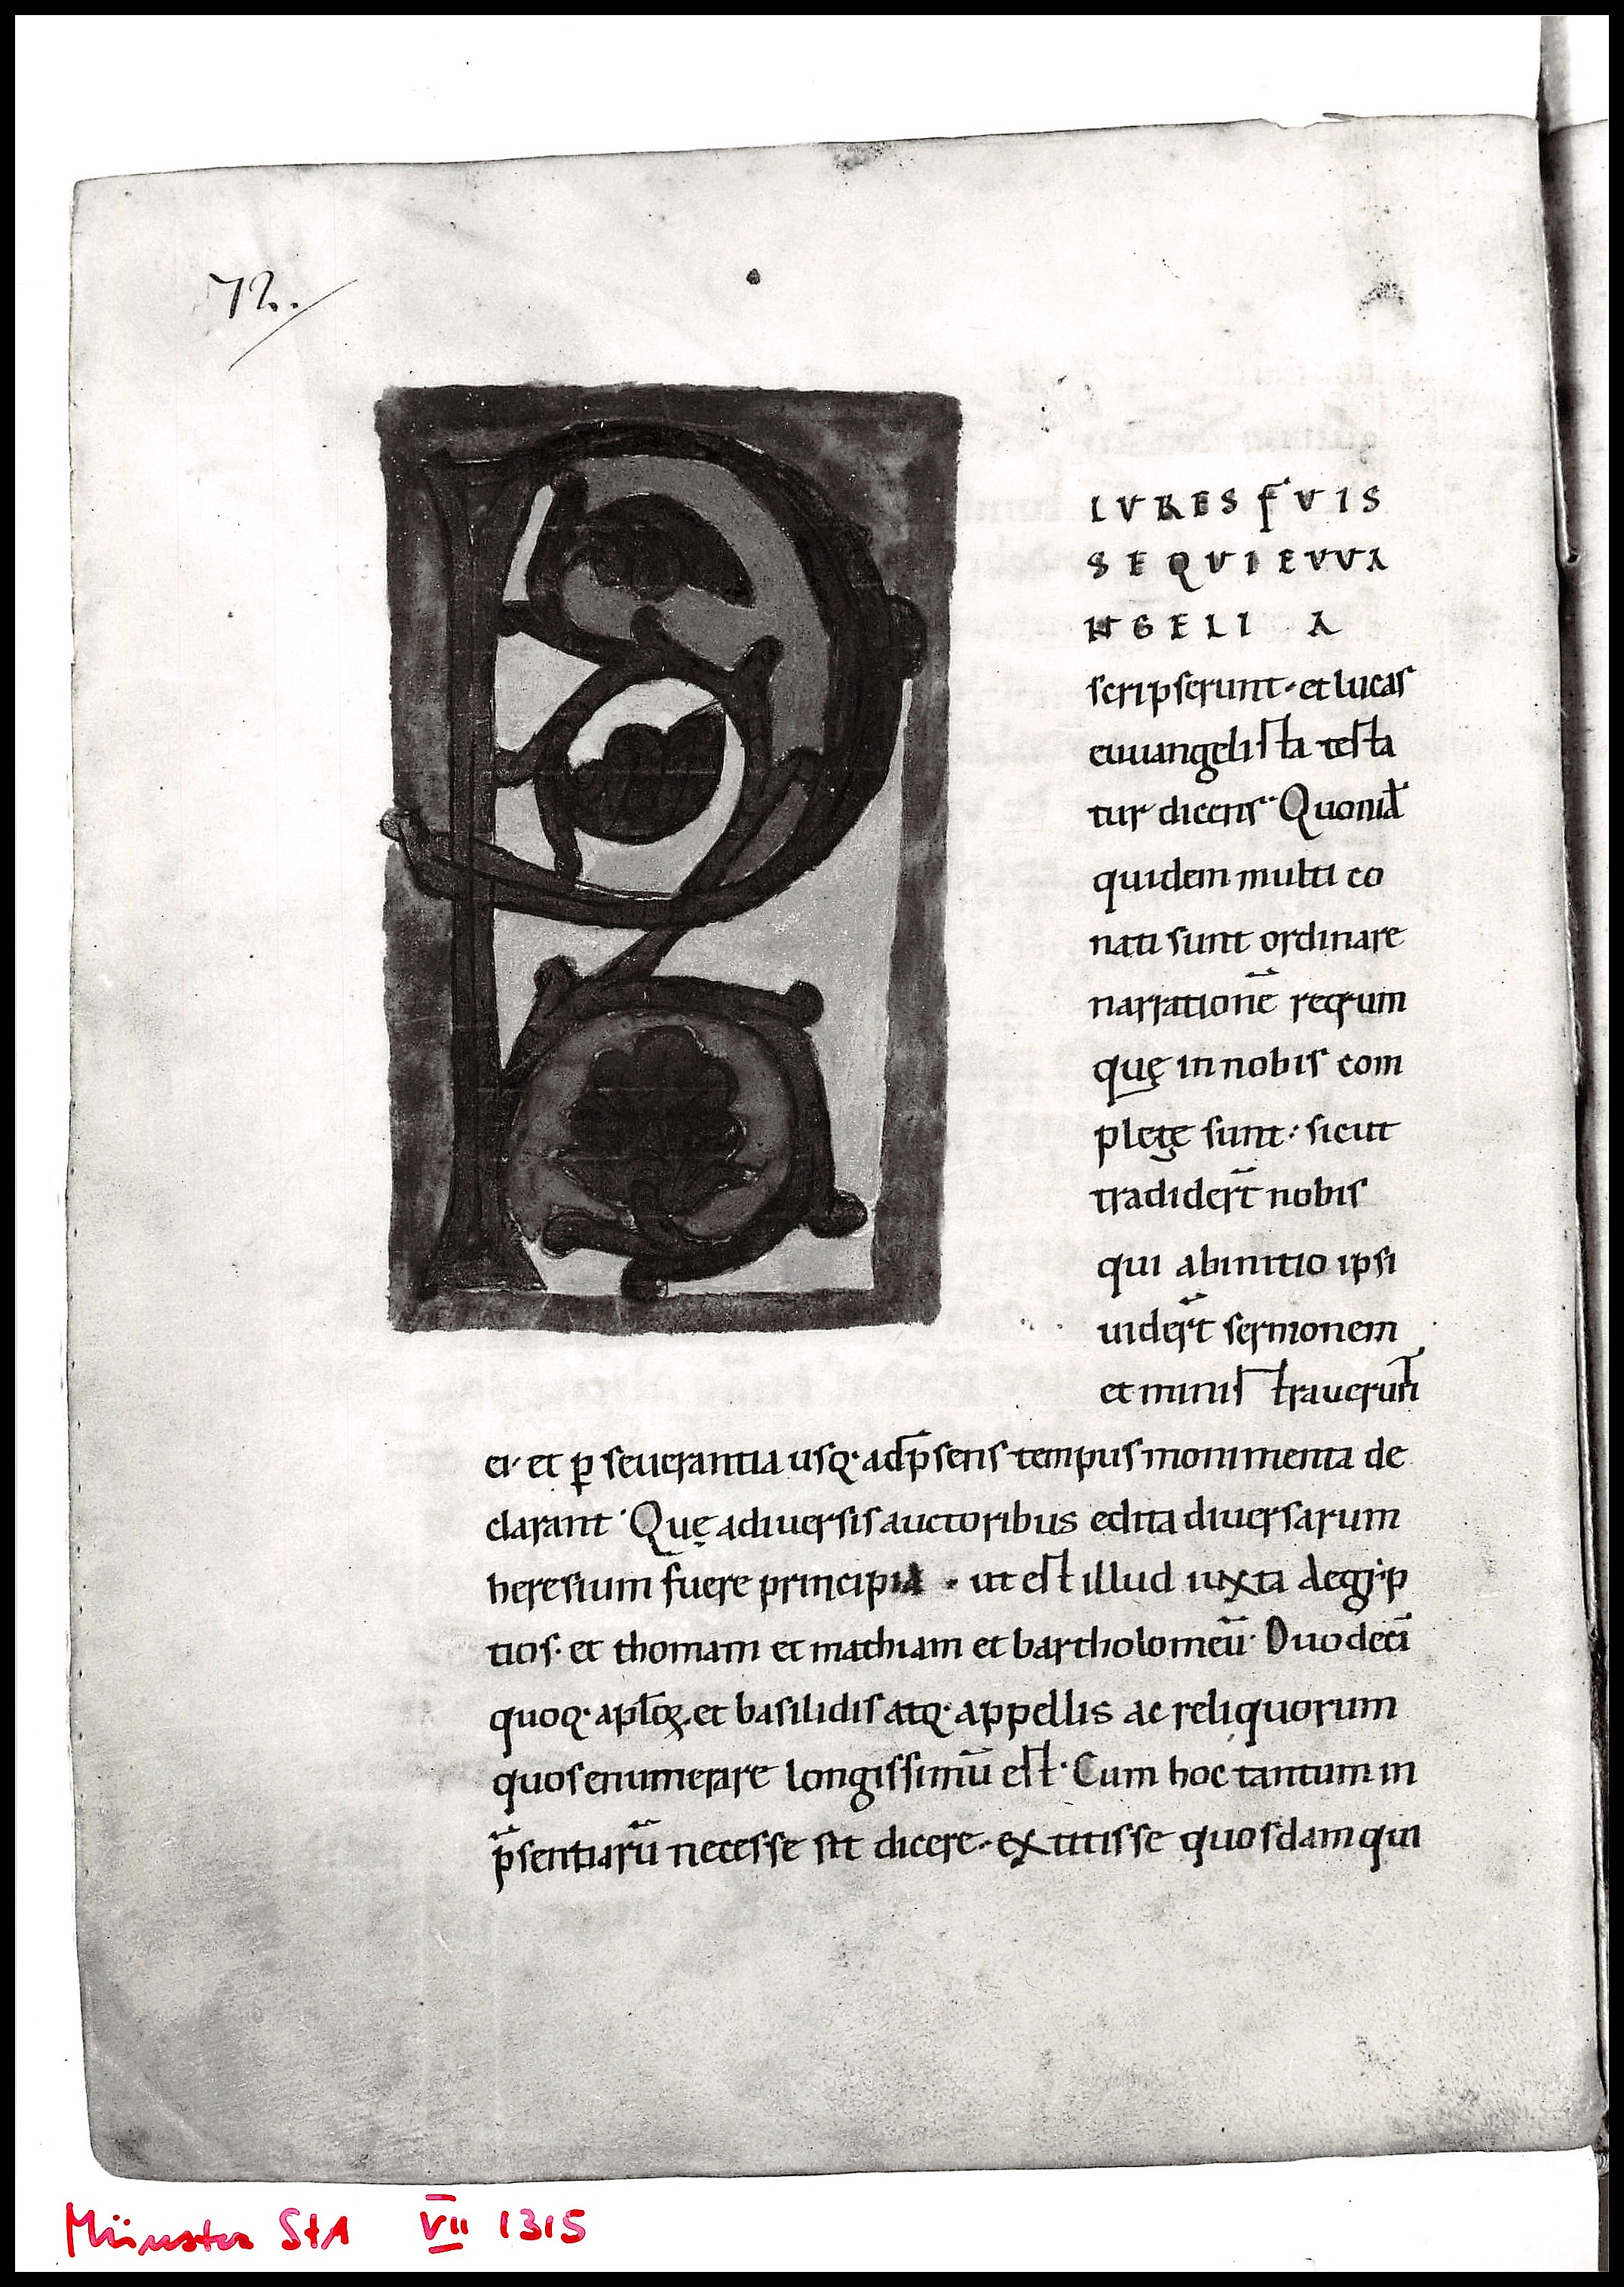 72.
P
LVRES FVIS
SE QVI EVVA
NGELI A
scripserunt· et lucas
euuangelista testa
tur dicens· Quonia̅
quidem multi co
nati sunt ordinare
narratione̅ rerum
quę in nobis com
pletę sunt· sicut
tradider̅t nobis
qui ab initio ipsi
uider̅t sermonem
et ministrauerun̅t
ei· et ꝑseuerantia usq· ad p̅sens tempus monimenta de
clarant· Quę a diuersis auctoribus edita diuersarum
heresium fuere principia · ut est illud iuxta aegip
tios· et thomam et mathiam et bartholomeu̅· Duodeci̅
quoq· apl̅oꝝ· et basilidis atq· appellis ac reliquorum
quos enumerare longissimu̅ est· Cum hoc tantum in
p̅sentiaru̅ necesse sit dicere· extitisse quosdam qui
Münster StA VII 1315